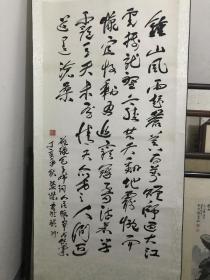 鐘山风雨起蒼黄百万雄师过大江
虎踞龙盘今胜昔天翻地覆慨而
慷宜将剩勇追穷寇不可沽名学
霸王天若有情天亦老人间正
道是沧桑
毛主席词人民解放军占领南京
丁亥年秋